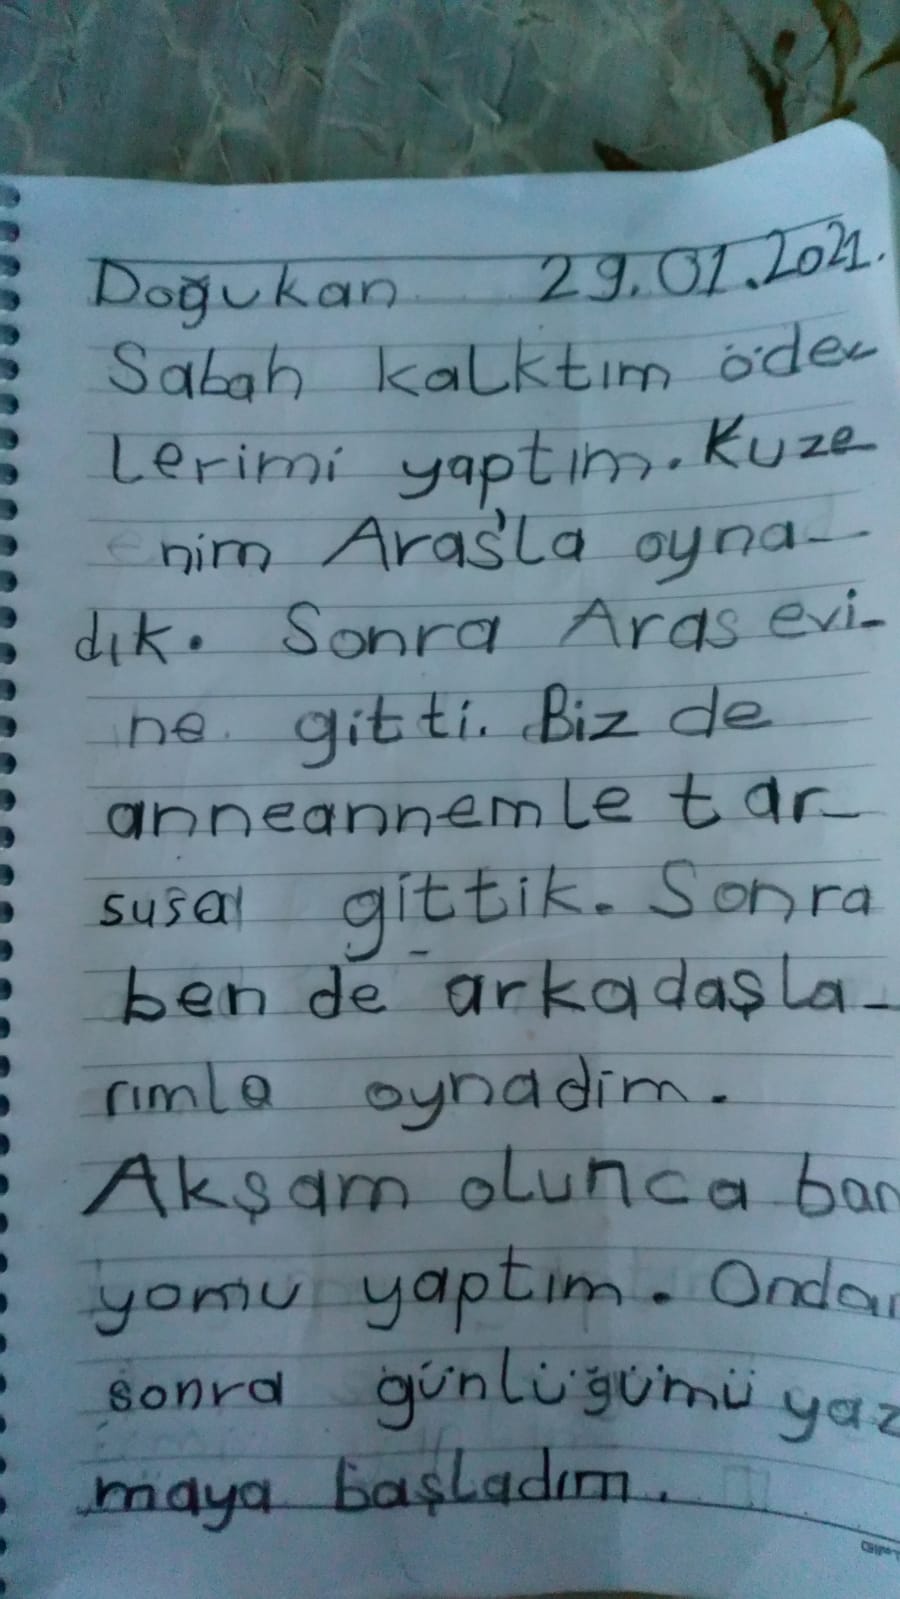 Doğukan 29.01.2021.
Sabah kalktım ödev
lerimi yaptım. Kuze
nim Aras'la oyna-
dık. Sonra Aras evi-
ne gitti. Biz de
anneannemle tar-
susa gittik. Sonra
ben de arkadaşla-
rımla oynadim.
Akşam olunca ban
yomu yaptım. Ondan
sonra günlüğümü yaz
maya başladım.